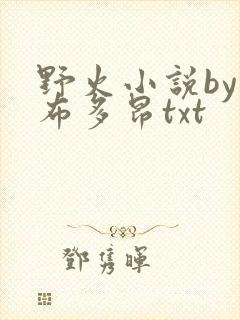 野火小説by
布多昂txt
鄧雋暉